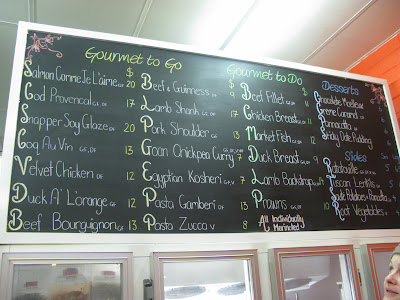 Gourmet to Go
$
Salmon Comme Je L'aime GF 20
Cod Provencal GF, DF 17
Snapper Soy Glaze DF 20
Coq Au Vin GF, DF 13
Velvet Chicken DF 12
Duck A' L'orange DF 12
Beef Bourguignon GF, DF 13
$
Beef & Guinness DF 9
Lamb Shank GF, DF 17
Pork Shoulder GF 13
Goan Chickpea Curry 7
Egyptian Kosheri GF, V 7
Pasta Gamberi 13
Pasta Zucca V 8
Gourmet to Do
$
Beef Fillet
Chicken Breast
Market Fish
Duck Breast 9
Lamb Backstrap
Prawns
All Individually
Marinated
Desserts
Chocolate Moelleux
Creme Caramel
Pannacotta
Sticky Date Pudding
Sides
Ratatouille
Tuscan Lentils
Sauté Potatoes & Pancetta
Root Vegetables